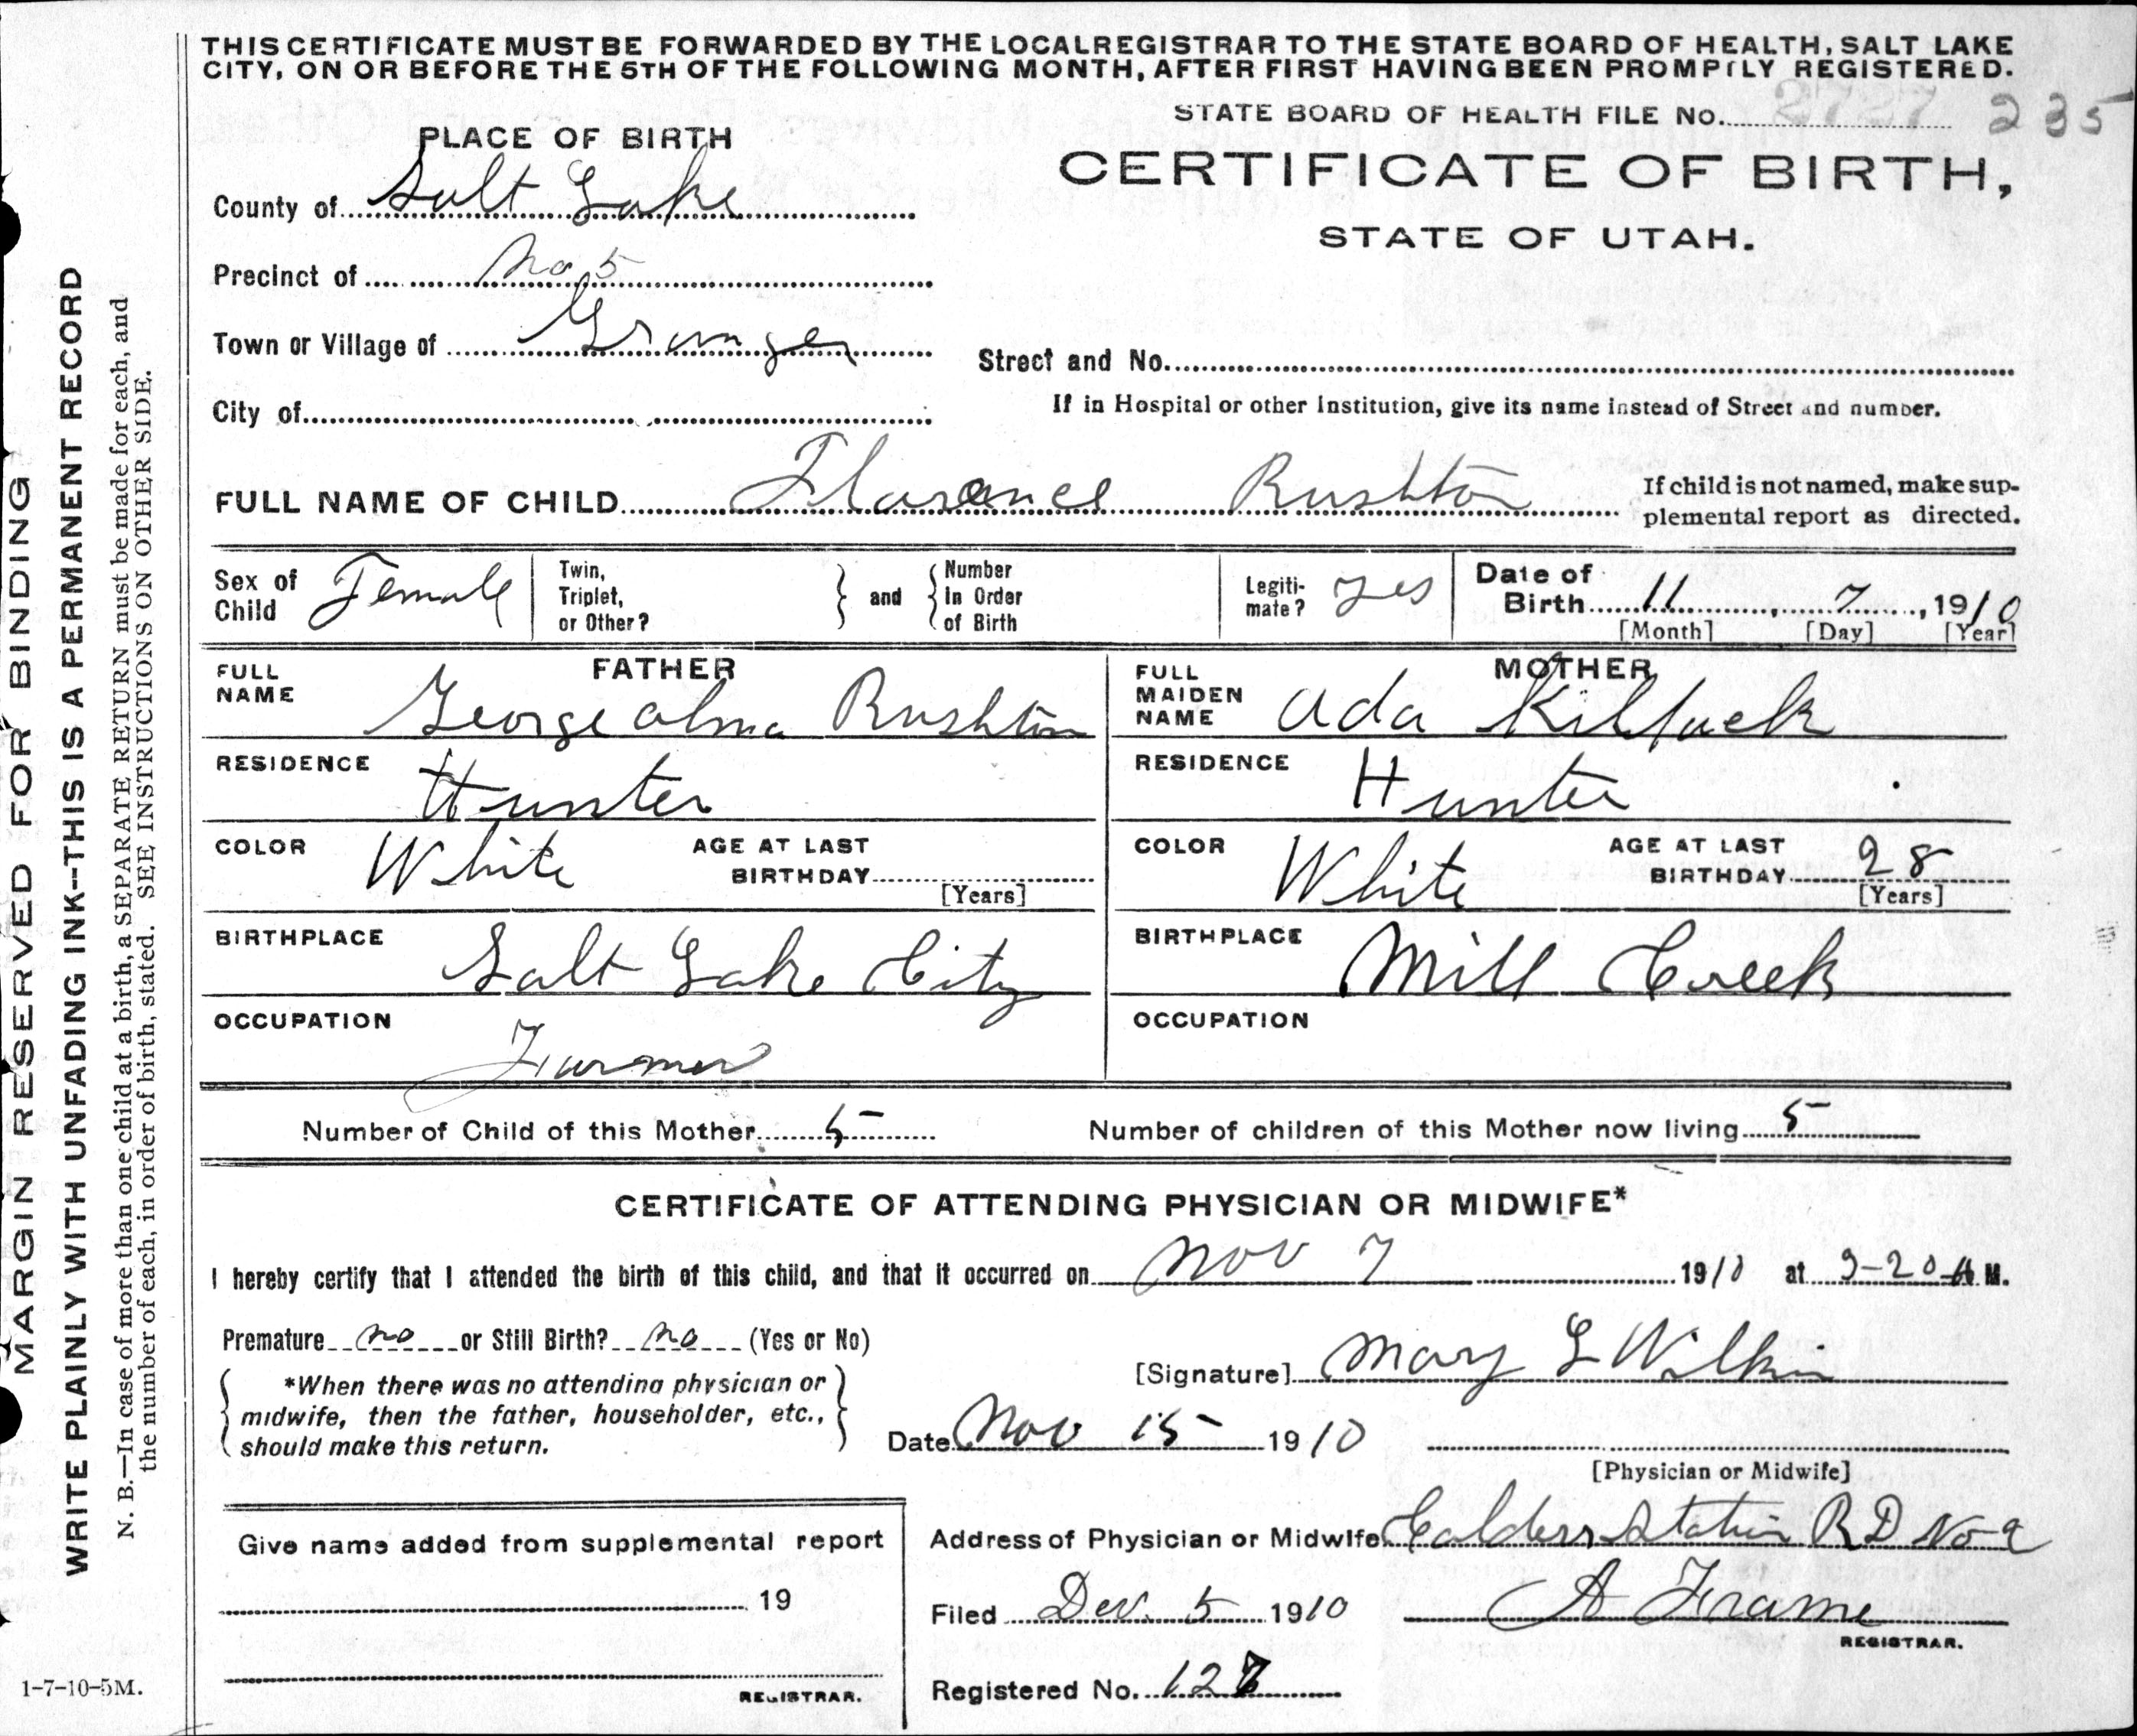 THIS CERTIFICATE MUST BE FORWARDED BY THE LOCAL REGISTRAR TO THE STATE BOARD OF HEALTH, SALT LAKE
CITY, ON OR BEFORE THE 5TH OF THE FOLLOWING MONTH, AFTER FIRST HAVING BEEN PROMPTLY REGISTERED.
STATE BOARD OF HEALTH FILE No. 2727 235
PLACE OF BIRTH
CERTIFICATE OF BIRTH,
STATE OF UTAH.
County of Salt Lake
Precinct of No 5
Town or Village of Granger
Street and No.
City of
If in Hospital or other Institution, give its name instead of Street and number.
FULL NAME OF CHILD Florence Rushton
If child is not named, make sup-
plemental report as directed.
Sex of
Child Female
Twin,
Triplet,
or Other?
and
Number
In Order
of Birth
Legiti-
mate? yes
Date of
Birth 11, 7, 1910
[Month] [Day] [Year]
FATHER
FULL
NAME George Alma Rushton
RESIDENCE Hunter
COLOR White
AGE AT LAST
BIRTHDAY
[Years]
BIRTHPLACE Salt Lake City
OCCUPATION
Farmer
MOTHER
FULL
MAIDEN
NAME Ada Killpack
RESIDENCE Hunter
COLOR White
AGE AT LAST
BIRTHDAY 28
[Years]
BIRTHPLACE Mill Creek
OCCUPATION
Number of Child of this Mother 5
Number of children of this Mother now living 5
CERTIFICATE OF ATTENDING PHYSICIAN OR MIDWIFE*
I hereby certify that I attended the birth of this child, and that it occurred on Nov 7 1910 at 9-20 A M.
Premature no or Still Birth? no (Yes or No)
[Signature] Mary L Wilkin
*When there was no attending physician or
midwife, then the father, householder, etc.,
should make this return.
Date Nov 15 1910
[Physician or Midwife]
Give name added from supplemental report
19
REGISTRAR.
Address of Physician or Midwife Calders Station R D No 2
Filed Dec. 5 1910 A Frame
REGISTRAR.
Registered No. 127
MARGIN RESERVED FOR BINDING
WRITE PLAINLY WITH UNFADING INK--THIS IS A PERMANENT RECORD
N. B.—In case of more than one child at a birth, a SEPARATE RETURN must be made for each, and
the number of each, in order of birth, stated. SEE INSTRUCTIONS ON OTHER SIDE.
1-7-10-5M.